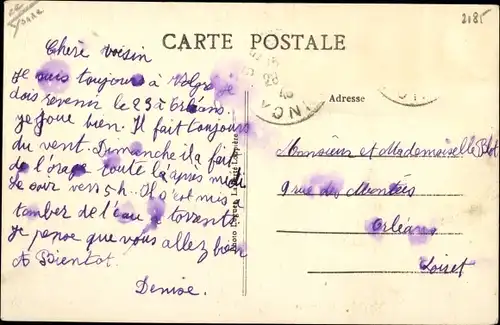 2085
CARTE POSTALE
Adresse
Chère voisin
Je suis toujours à je
dois revenir le 23 à Orléans.
je joue bien. Il fait toujours
du vent. Dimanche il a fait
de l'orage toute l'après midi
Le soir vers 5h. Il s'est mis à
tamber de l'eau a torrents
je pense que vous allez bien
A Bientot.
Denise.
Monsieur et Mademoiselle
9 rue des Montées
Orléans
Loiret